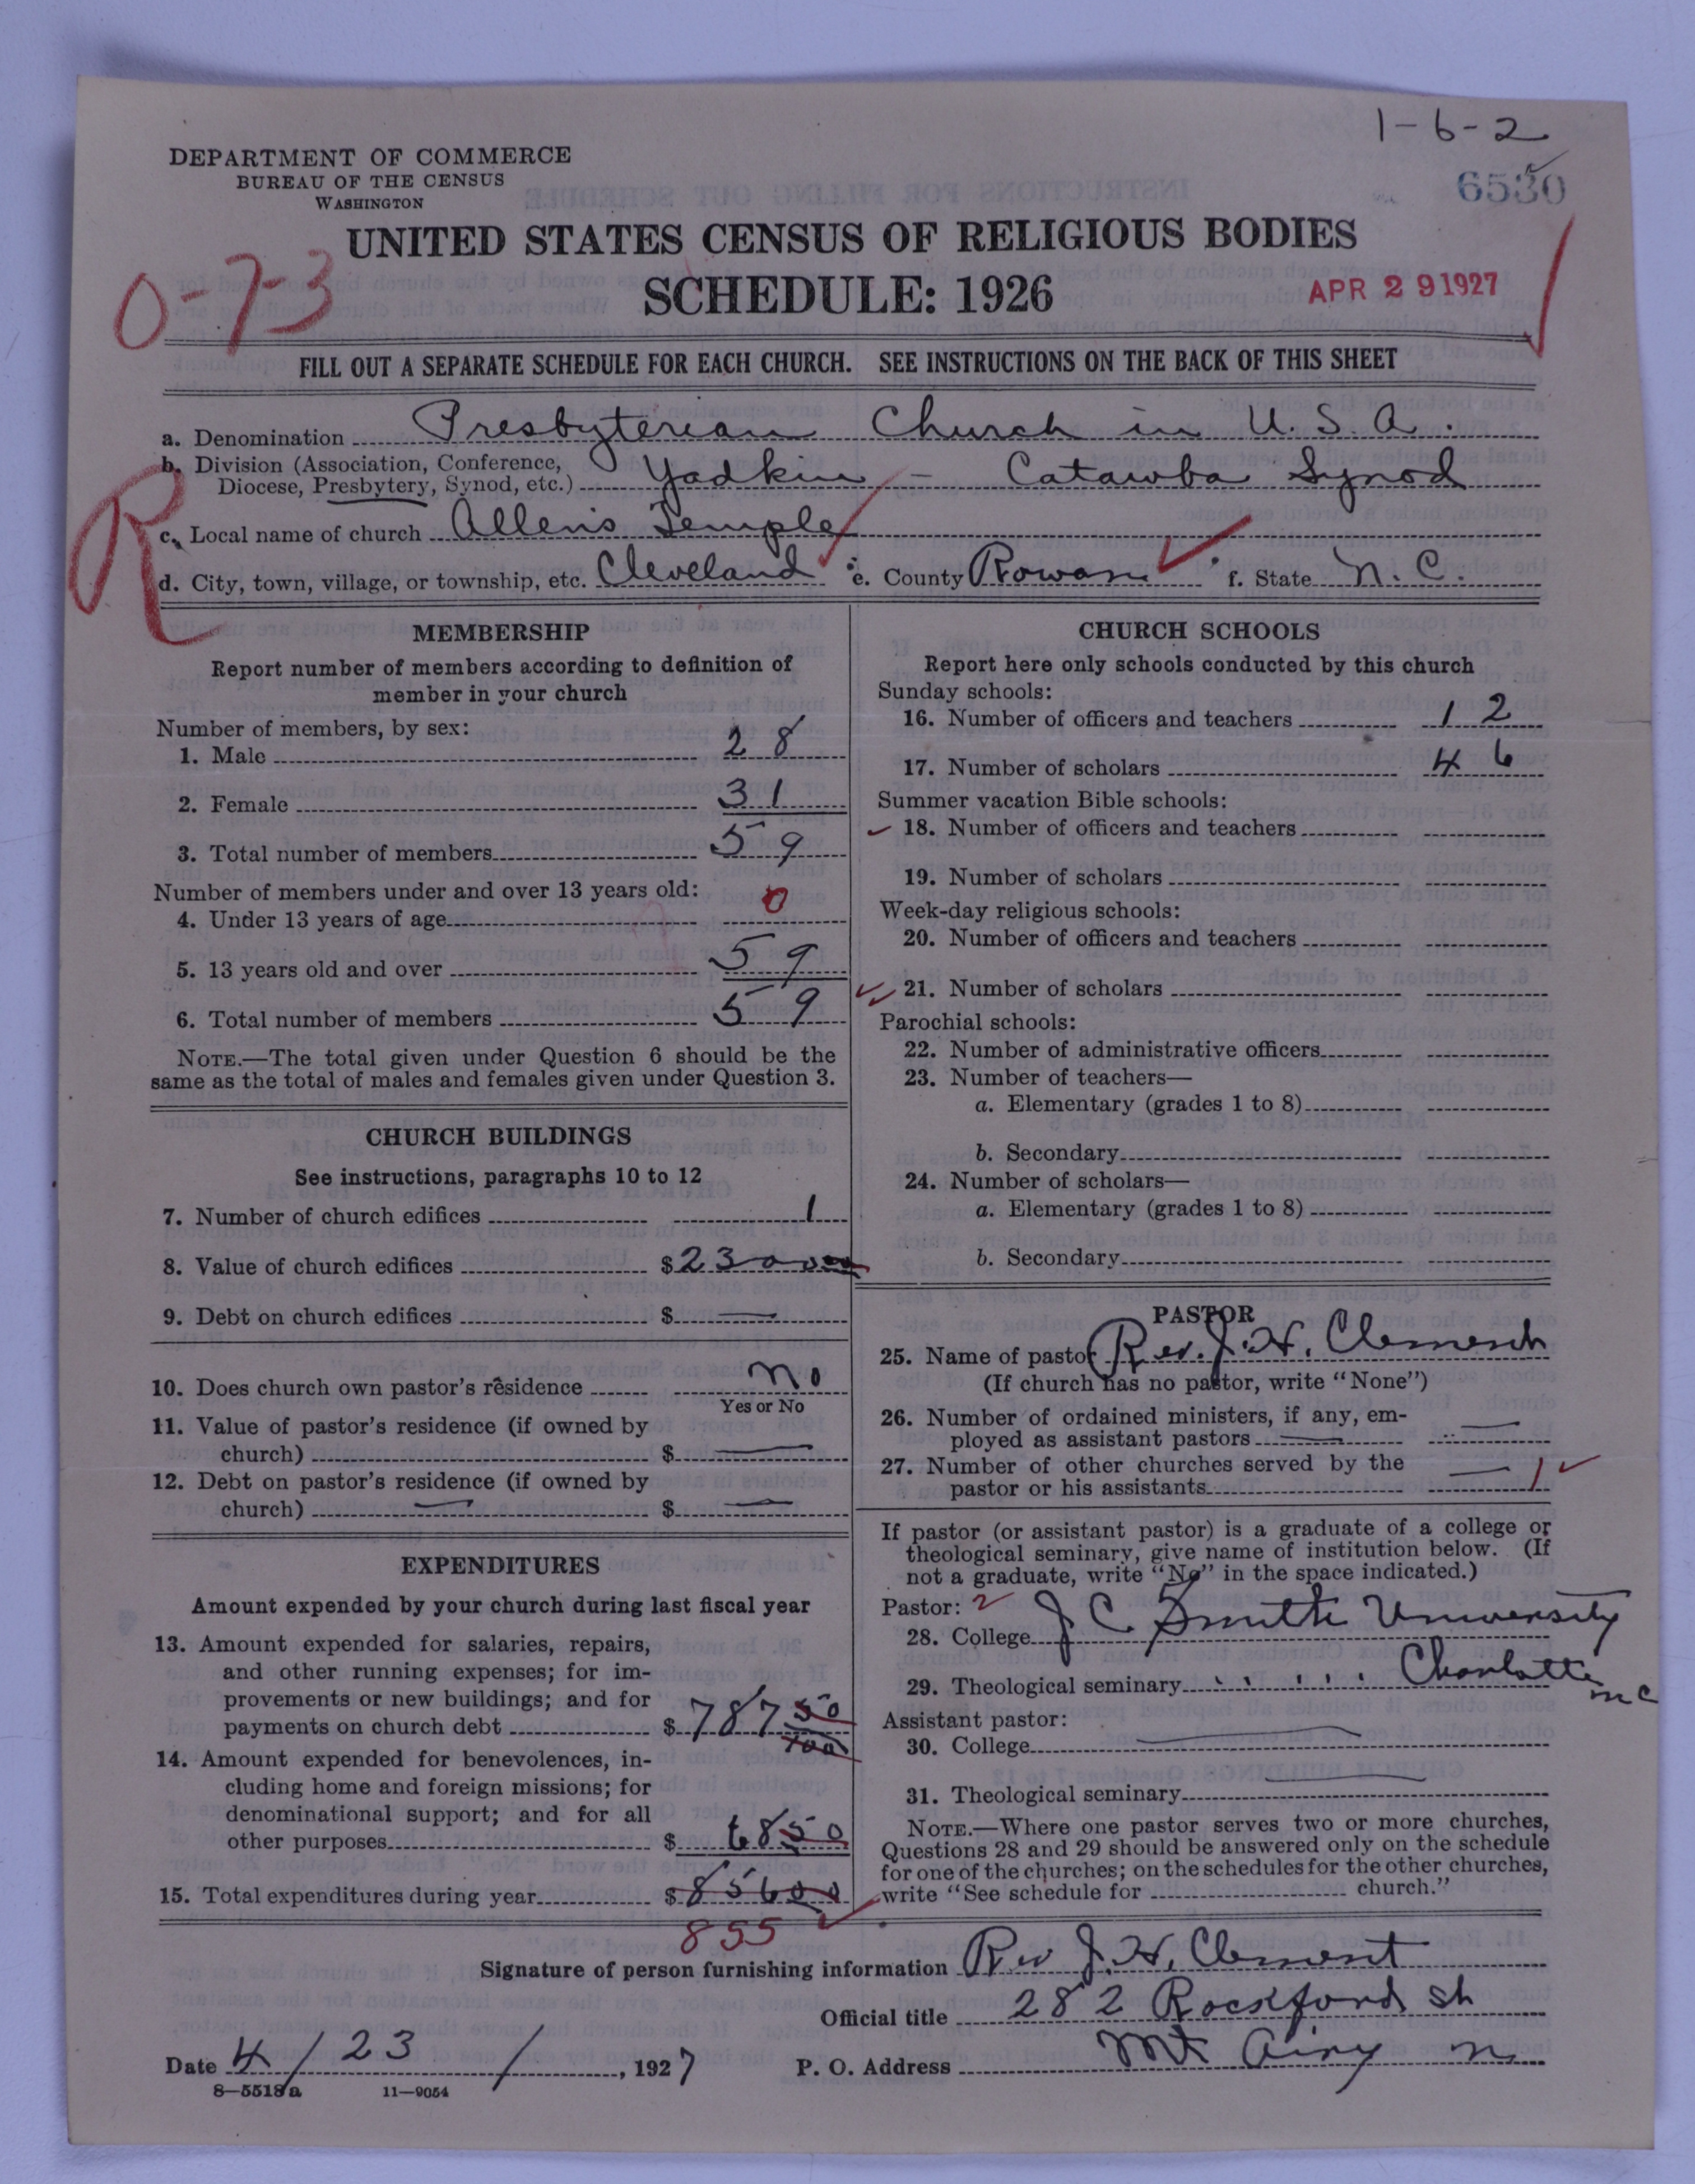 1-6-2
DEPARTMENT OF COMMERCE
BUREAU OF THE CENSUS
WASHINGTON
6530
UNITED STATES CENSUS OF RELIGIOUS BODIES
0-7-3
SCHEDULE: 1926
APR 29 1927
FILL OUT A SEPARATE SCHEDULE FOR EACH CHURCH. SEE INSTRUCTIONS ON THE BACK OF THIS SHEET
a. Denomination Presbyterian Church in U.S.A.
b. Division (Association, Conference, Diocese, Presbytery, Synod, etc.) Yadkin - Catawba Synod
R
c. Local name of church Allen's Temple
d. City, town, village, or township, etc. Cleveland e. County Rowan f. State N.C.
MEMBERSHIP
Report number of members according to definition of
member in your church
Number of members, by sex:
1. Male 28
2. Female 31
3. Total number of members 59
Number of members under and over 13 years old:
4. Under 13 years of age 0
5. 13 years old and over 59
6. Total number of members 59
NOTE.—The total given under Question 6 should be the
same as the total of males and females given under Question 3.
CHURCH BUILDINGS
See instructions, paragraphs 10 to 12
7. Number of church edifices 1
8. Value of church edifices $ 2300
9. Debt on church edifices $ —
10. Does church own pastor's residence No
Yes or No
11. Value of pastor's residence (if owned by
church) $ —
12. Debt on pastor's residence (if owned by
church) — $ —
EXPENDITURES
Amount expended by your church during last fiscal year
13. Amount expended for salaries, repairs,
and other running expenses; for im-
provements or new buildings; and for
payments on church debt $ 787 50/100
14. Amount expended for benevolences, in-
cluding home and foreign missions; for
denominational support; and for all
other purposes $ 68 50
15. Total expenditures during year $ 856 00
855
CHURCH SCHOOLS
Report here only schools conducted by this church
Sunday schools:
16. Number of officers and teachers 12
17. Number of scholars 46
Summer vacation Bible schools:
18. Number of officers and teachers
19. Number of scholars
Week-day religious schools:
20. Number of officers and teachers
21. Number of scholars
Parochial schools:
22. Number of administrative officers
23. Number of teachers—
a. Elementary (grades 1 to 8)
b. Secondary
24. Number of scholars—
a. Elementary (grades 1 to 8)
b. Secondary
PASTOR
25. Name of pastor Rev. J. H. Clement
(If church has no pastor, write "None")
26. Number of ordained ministers, if any, em-
ployed as assistant pastors — —
27. Number of other churches served by the
pastor or his assistants — 1
If pastor (or assistant pastor) is a graduate of a college or
theological seminary, give name of institution below. (If
not a graduate, write "No" in the space indicated.)
Pastor: 2
28. College J C Smith University
29. Theological seminary " " Charlotte NC
Assistant pastor:
30. College —
31. Theological seminary —
NOTE.—Where one pastor serves two or more churches,
Questions 28 and 29 should be answered only on the schedule
for one of the churches; on the schedules for the other churches,
write "See schedule for church."
Signature of person furnishing information Rev J. H. Clement
Official title 282 Rockford St
Date 4/23/, 1927 P. O. Address Mt Airy N
8—5518a 11—9054